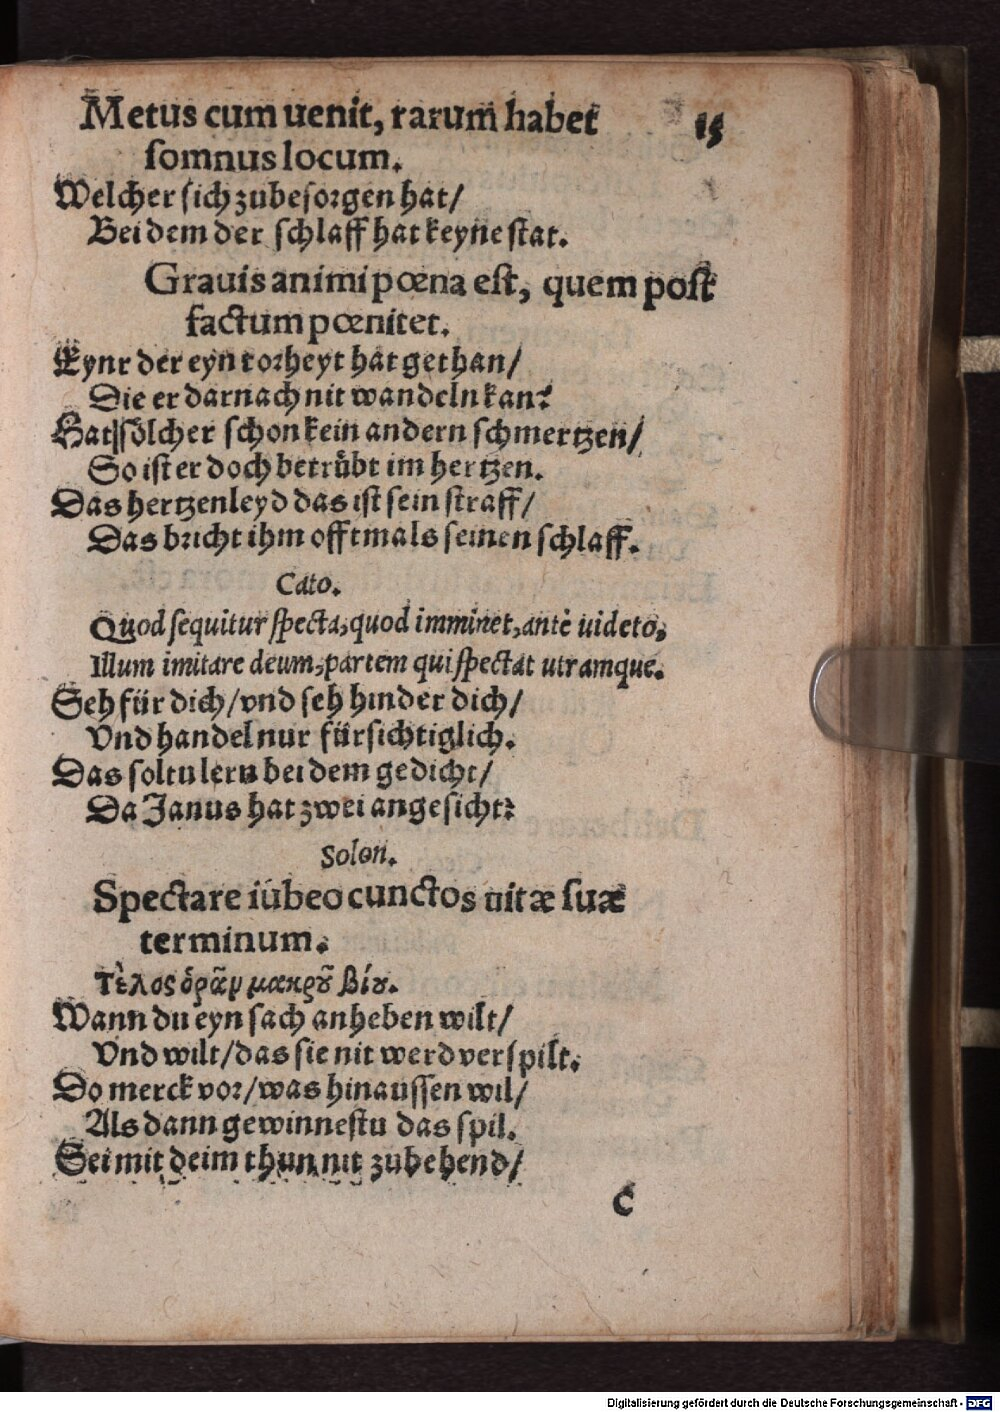 Metus cum uenit, rarum habet
15
somnus locum.
Welcher sich zubesorgen hat/
Bei dem der schlaff hat keyne stat.
Grauis animi pœna est, quem post
factum pœnitet.
Eynr der eyn torheyt hat gethan/
Die er darnach nit wandeln kan?
Hat sölcher schon kein andern schmertzen/
So ist er doch betrübt im hertzen.
Das hertzenleyd das ist sein straff/
Das bricht ihm offtmals seinen schlaff.
Cato.
Quod sequitur specta, quod imminet, antè uideto,
Illum imitare deum, partem qui spectat utramque.
Seh für dich/vnd seh hinder dich/
Vnd handel nur fürsichtiglich.
Das soltu lern bei dem gedicht/
Da Janus hat zwei angesicht?
Solon.
Spectare iubeo cunctos uitæ suæ
terminum.
Τέλος ὁρᾷν μακροῦ βίου.
Wann du eyn sach anheben wilt/
Vnd wilt/das sie nit werd verspilt.
Do merck vor/was hinaussen wil/
Als dann gewinnestu das spil.
Sei mit deim thun nit zubehend/
C
Digitalisierung gefördert durch die Deutsche Forschungsgemeinschaft - DFG